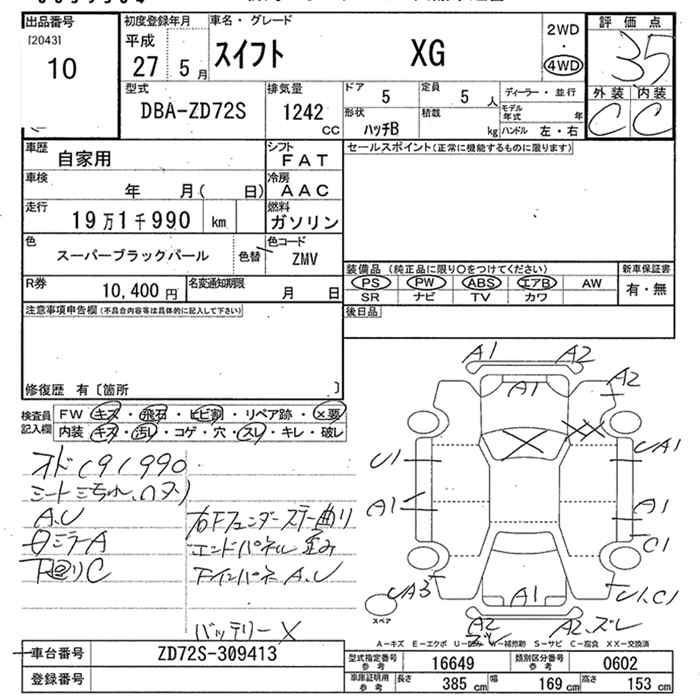 出品番号
[2043]
10
初度登録年月
平成
27 5月
車名・グレード
スイフト XG
2WD
・
4WD
評価点
35
外装 内装
C C
型式
DBA-ZD72S
排気量
1242
CC
ドア
5
定員
5人
ディーラー・並行
形状
ハッチB
積載
kg
モデル年式 年
ハンドル 左・右
車歴
自家用
シフト
FAT
車検
年 月( 日)
冷房
AAC
走行
19万1千990 km
燃料
ガソリン
色
スーパーブラックパール
色替
色コード
ZMV
R券
10,400円
名変通知期限
月 日
セールスポイント(正常に機能するものに限ります)
装備品 (純正品に限り○をつけてください)
PS PW ABS エアB AW
SR ナビ TV カワ
新車保証書
有・無
後日品
注意事項申告欄(不具合内容等は具体的に記入して下さい)
修復歴 有〔箇所 〕
検査員
記入欄
FW キズ・飛石・ヒビ割・リペア跡・×要
内装 キズ・汚レ・コゲ・穴・スレ・キレ・破レ
オド191990
A.U
ミラーA
下回りC
右Fフェンダーステー曲り
エンドパネル歪み
A.U
バッテリーX
A1 A2
A1
A2
U1
UA1
A1
A1
C1
UA3
U1.C1
A1
A2
ズレ
A2.ズレ
スペア
A－キズ E－エクボ U－凹み W－補修跡 S－サビ C－腐食 XX－交換済
車台番号
ZD72S-309413
登録番号
型式指定番号
参考
16649
類別区分番号
参考
0602
車庫証明用
参考
長さ 385 cm
幅 169 cm
高さ 153 cm